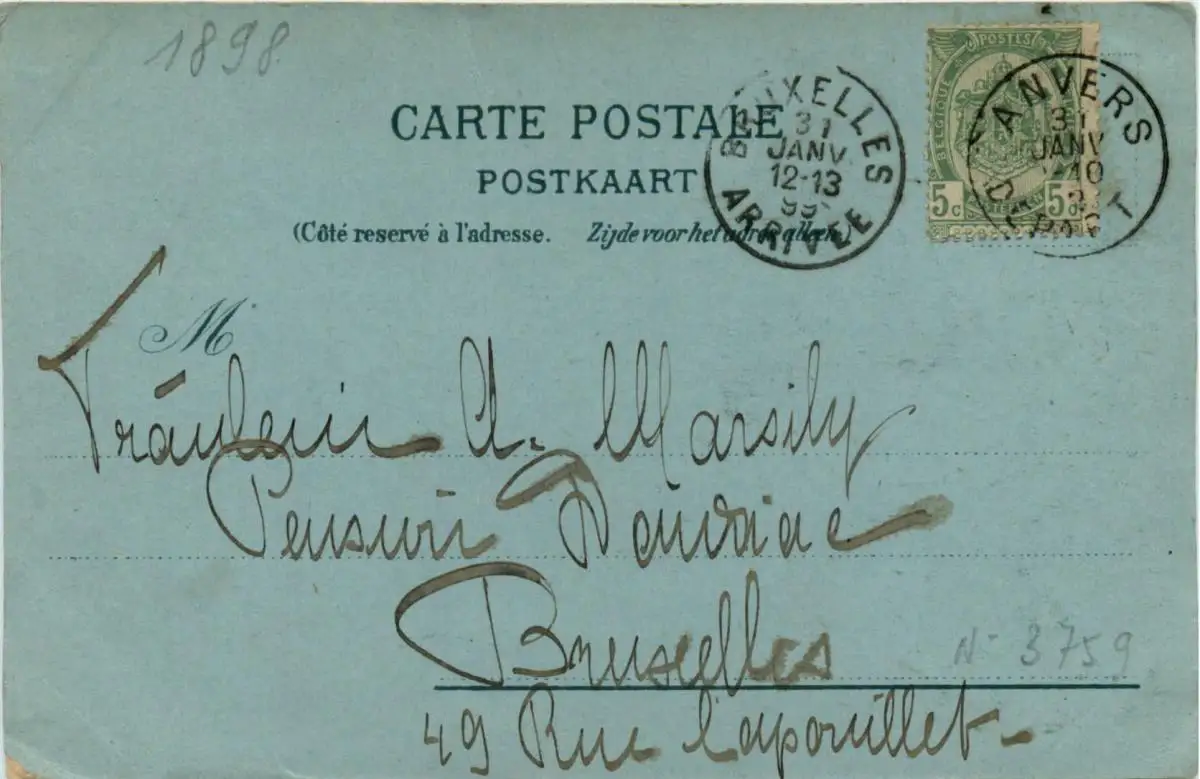 1898.
CARTE POSTALE
POSTKAART
(Côté reservé à l'adresse. Zijde voor het adres alleen.)
POSTES
BELGIQUE
5c 5c
BRUXELLES
31
JANV
12-13
99
ARRIVÉE
ANVERS
31
JANV
10
DÉPART
M
Fräulein A. Marsily
Pension
Bruxelles
N- 3759
49 Rue Capouillet